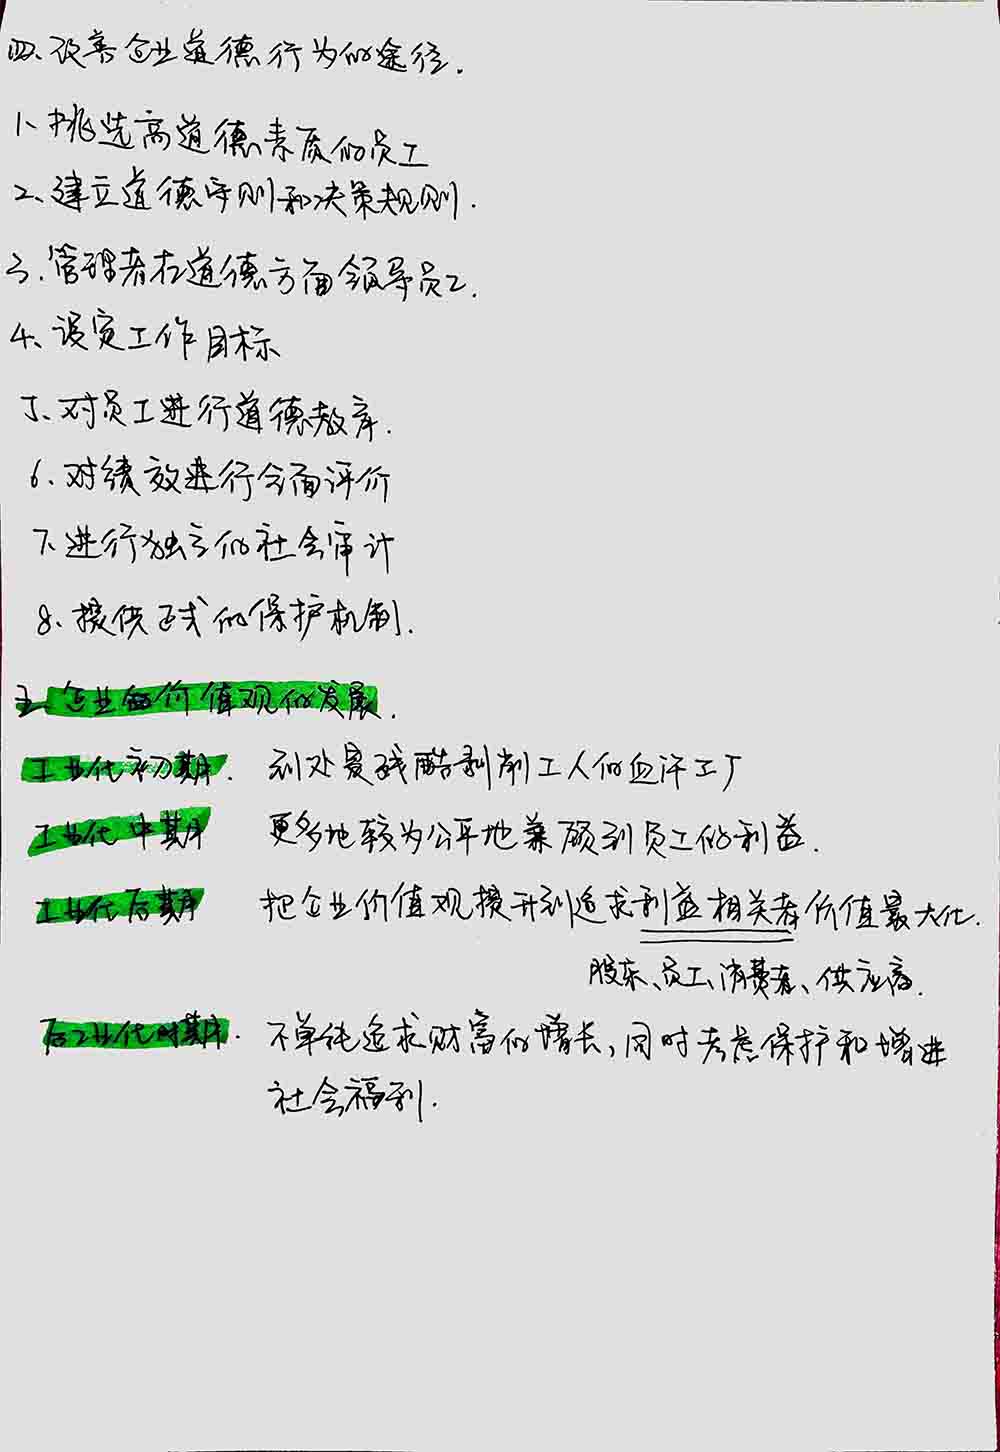 四、改善企业道德行为的途径.
1、挑选高道德素质的员工
2、建立道德守则和决策规则.
3.管理者在道德方面领导员工.
4、设定工作目标
5、对员工进行道德教育.
6、对绩效进行全面评价
7、进行独立的社会审计
8、提供正式的保护机制.
五 企业的价值观的发展.
工业化初期. 到处是残酷剥削工人的血汗工厂
工业化中期 更多地较为公平地兼顾到员工的利益.
工业化后期 把企业价值观提升到追求利益相关者价值最大化.
股东、员工、消费者、供应商.
后工业化时期. 不单纯追求财富的增长,同时考虑保护和增进
社会福利.